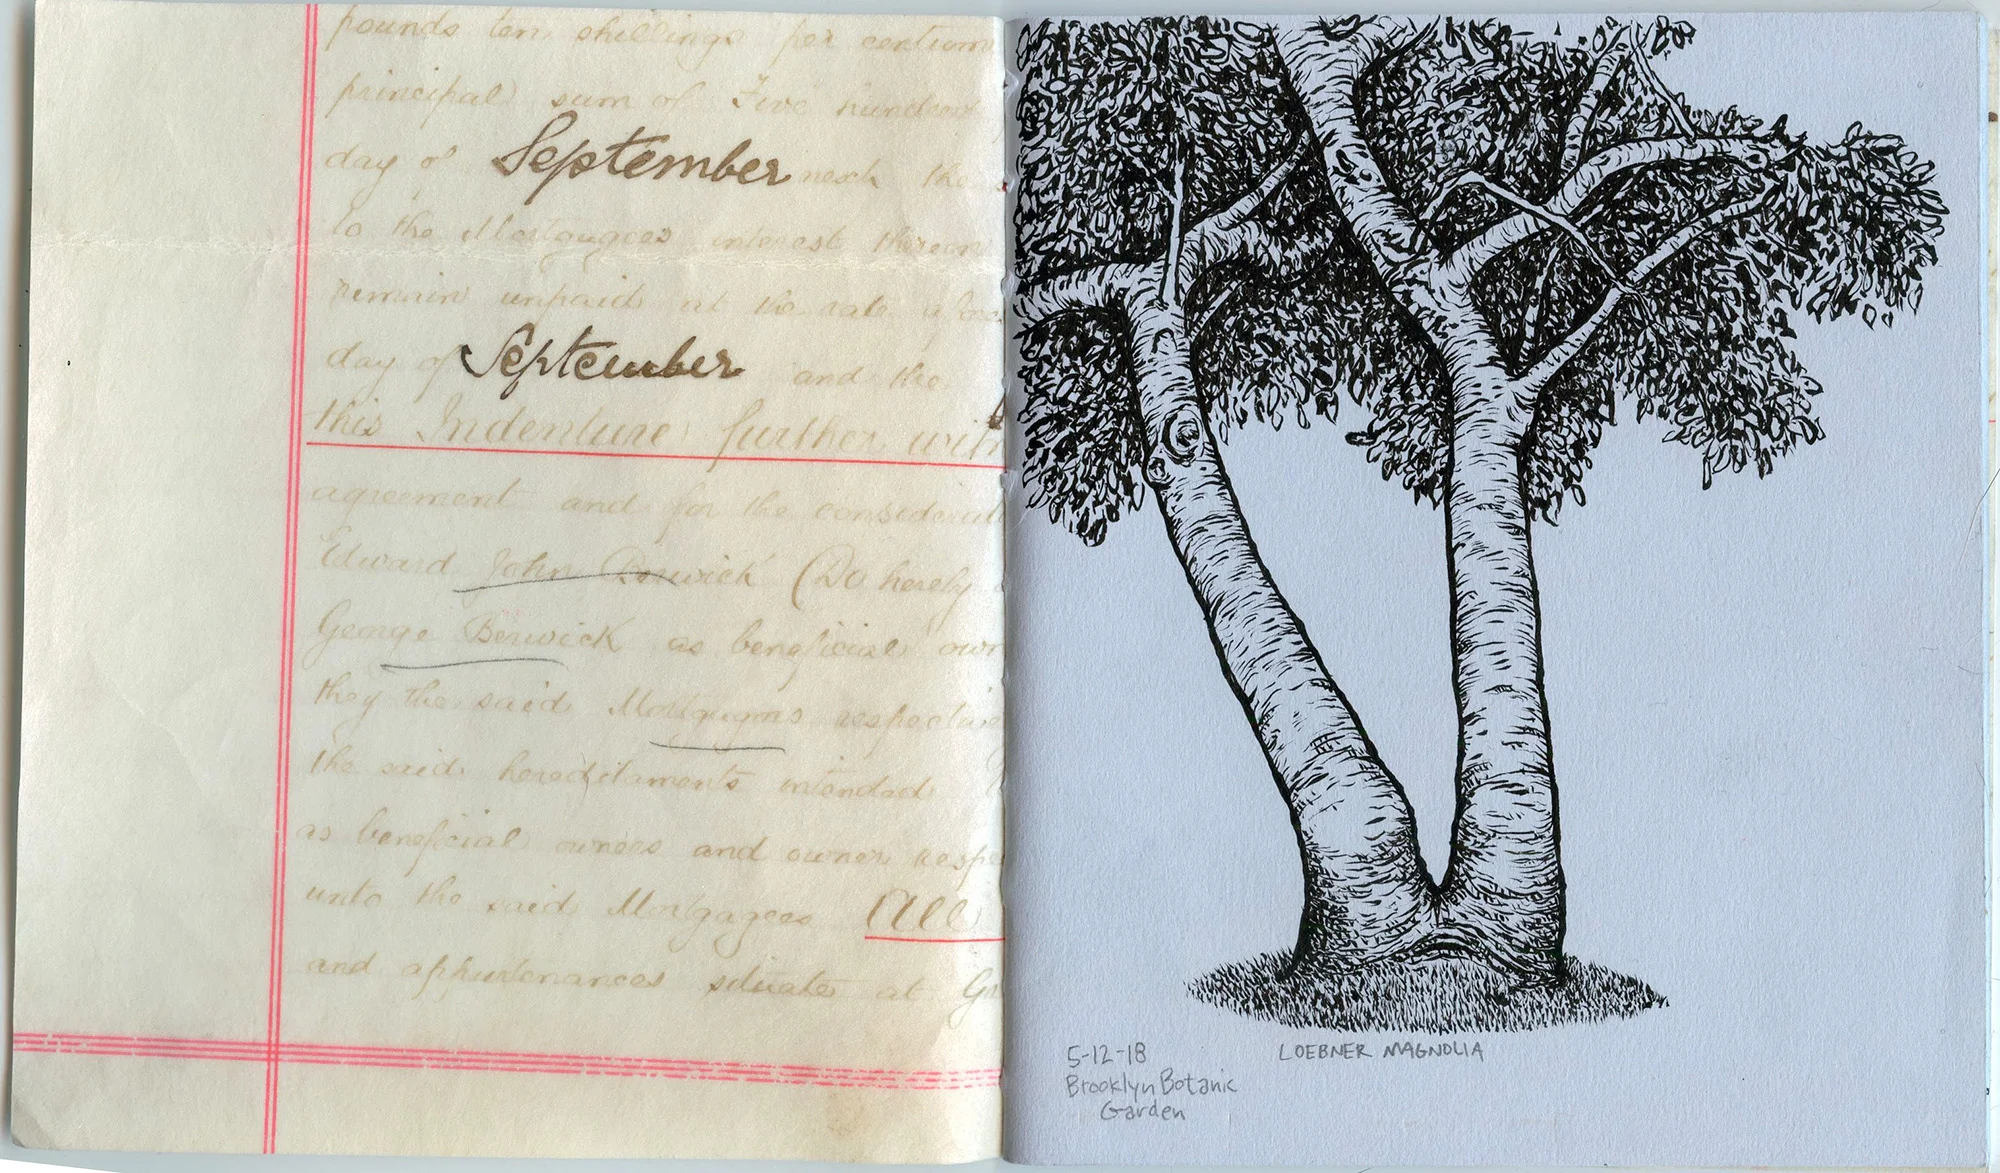 pounds ten shillings per centum
principal sum of Five hundred
day of September next the
to the Mortgagees interest thereon
remain unpaid at the rate afore
day of September and the
this Indenture further with
agreement and for the considerati
Edward John Berwick (Do hereby
George Berwick as beneficial own
they the said Mortgagors respective
the said hereditaments intended
as beneficial owners and owner respe
unto the said Mortgagees All
and appurtenances situate at Gr
5-12-18
Brooklyn Botanic
Garden
LOEBNER MAGNOLIA